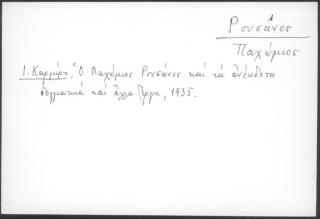 Ρουσάνος
Παχώμιος
Ι. Καρμίρη, Ὁ Παχώμιος Ρουσάνος καὶ τὰ ἀνέκδοτα
δογματικὰ καὶ ἄλλα ἔργα, 1935.